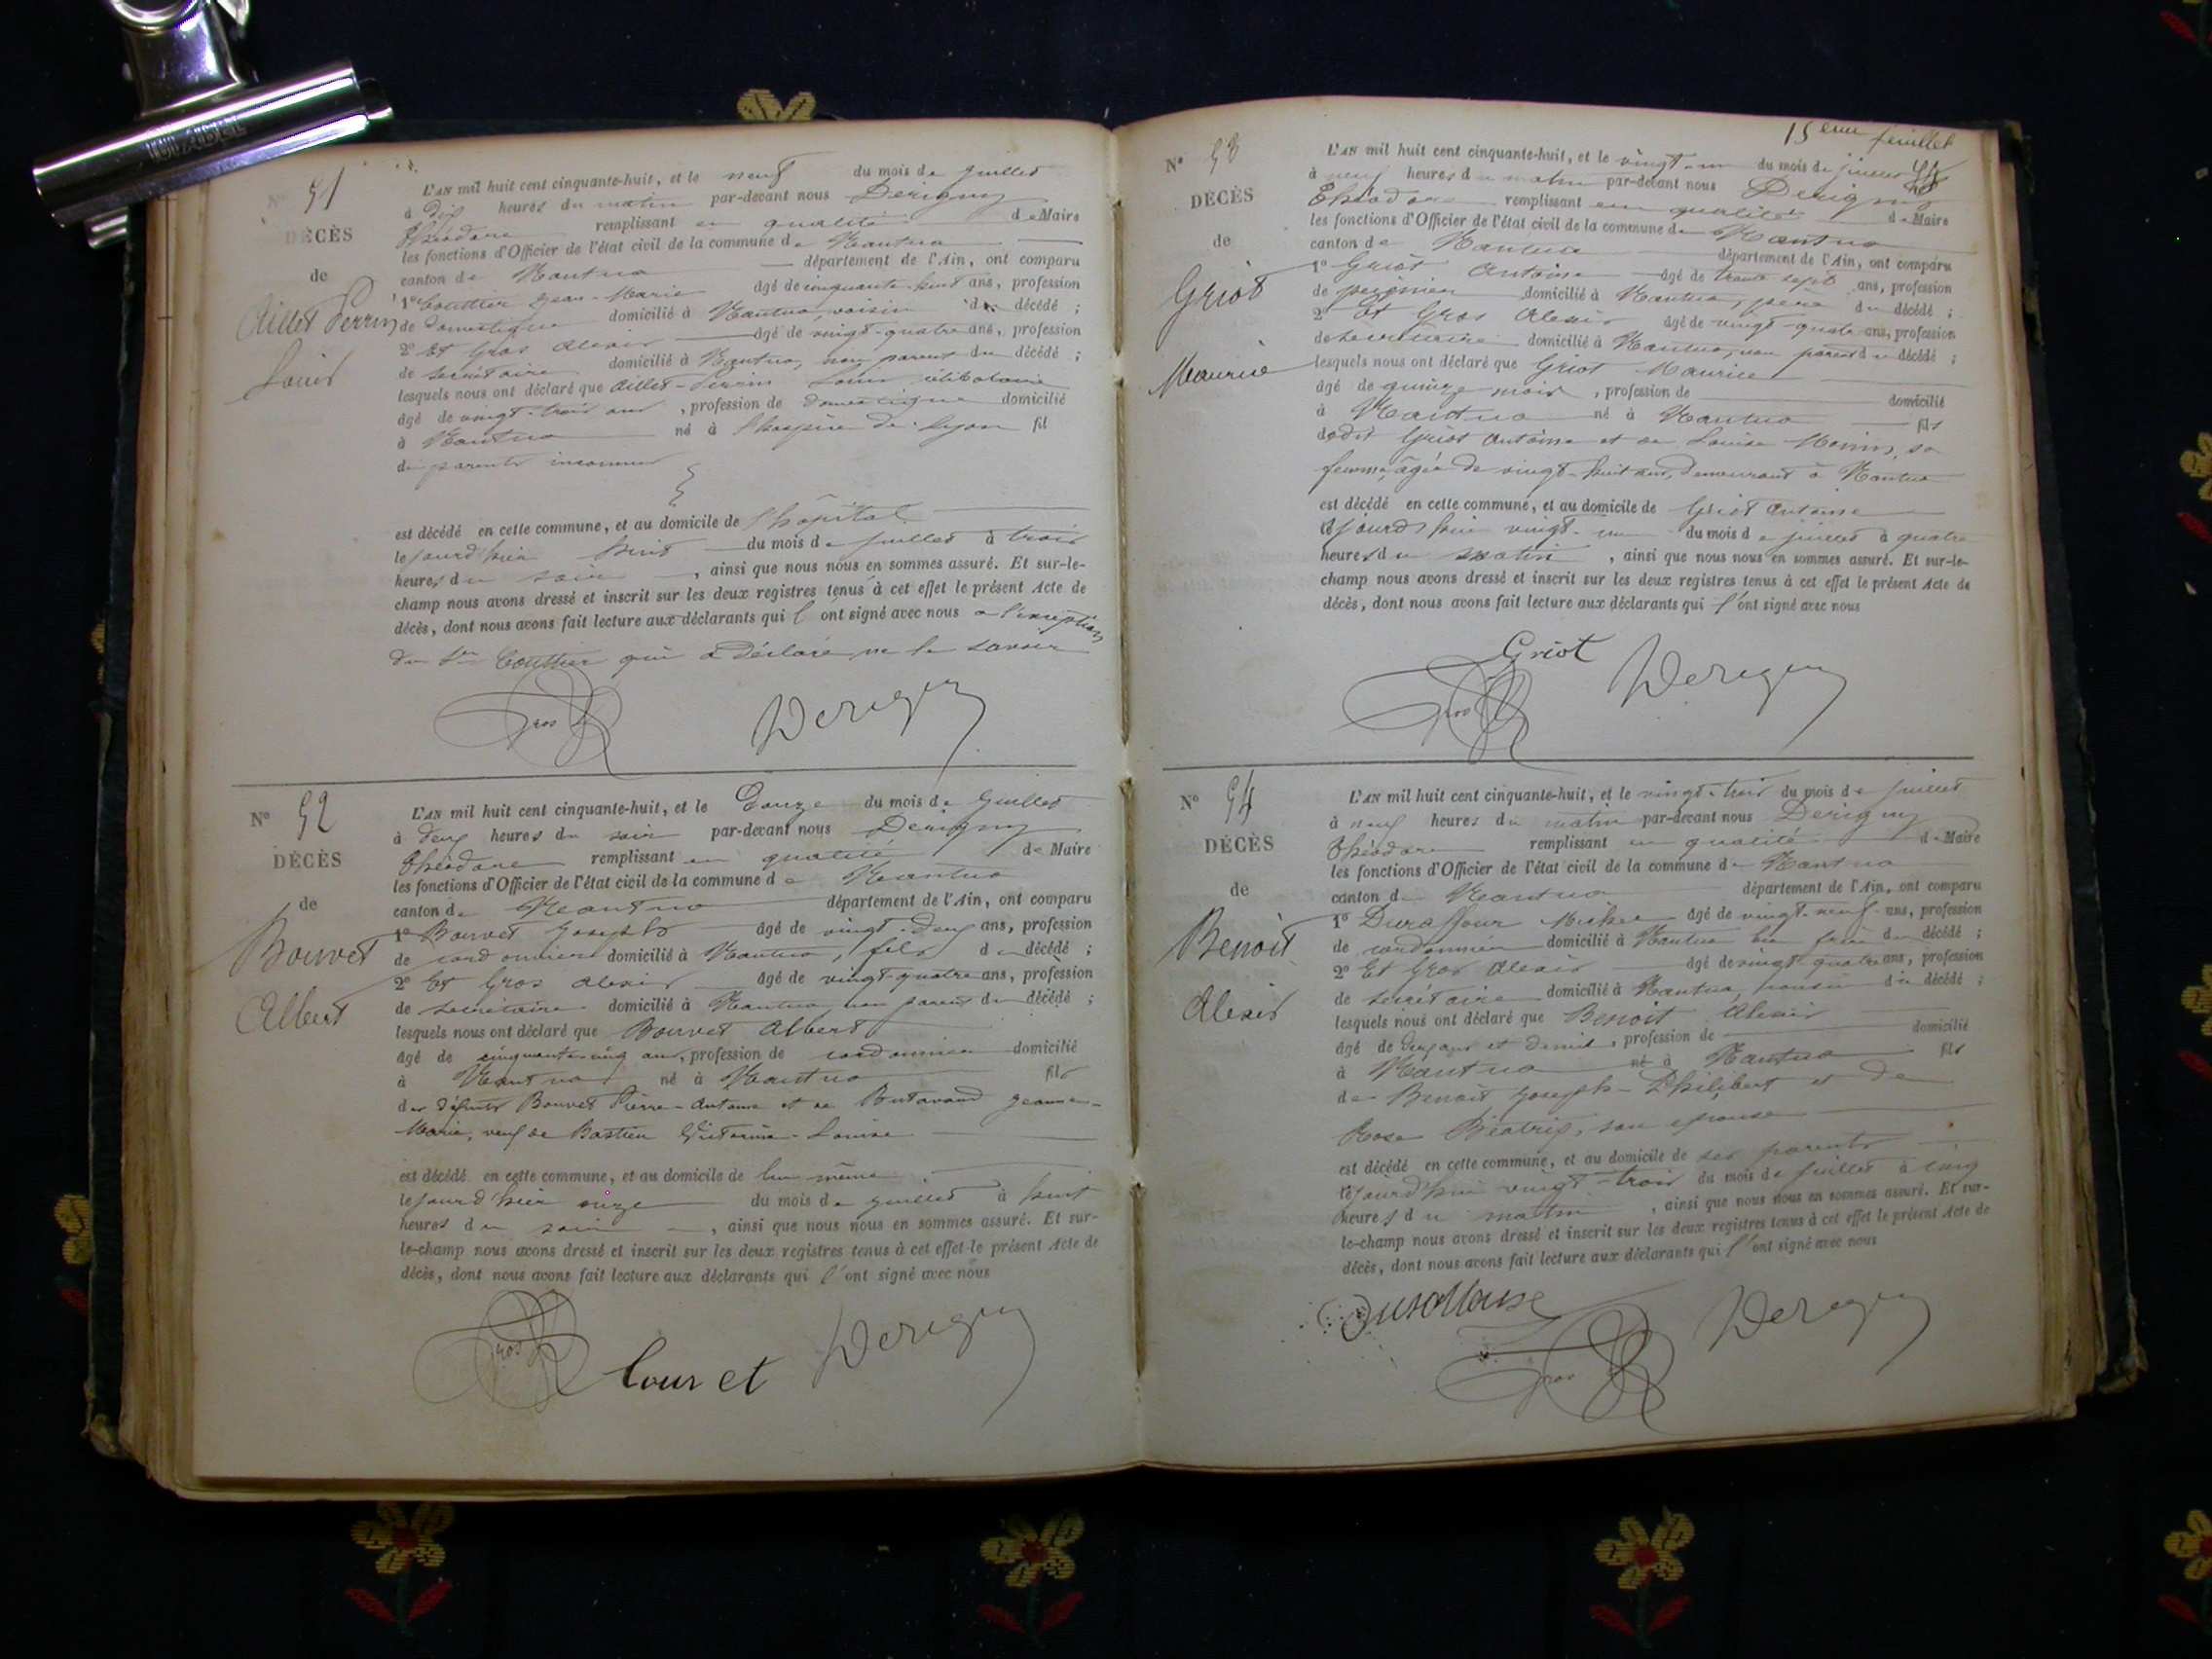 N° 51
DÉCÈS
de
Aillet Perrin
Louis
L'AN mil huit cent cinquante-huit, et le neuf du mois de Juillet
à dix heures du matin par-devant nous Derigny
Théodore remplissant en qualité de Maire
les fonctions d'Officier de l'état civil de la commune de Nantua
canton de Nantua département de l'Ain, ont comparu
1° Couttier Jean-Marie âgé de cinquante-huit ans, profession
de domestique domicilié à Nantua, voisin du décédé ;
2° Et Gros Alexis âgé de vingt-quatre ans, profession
de secrétaire domicilié à Nantua, non parent du décédé ;
lesquels nous ont déclaré que Aillet-Perrin Louis célibataire
âgé de vingt-trois ans, profession de domestique domicilié
à Nantua né à l'hospice de Lyon fil
de parents inconnus
est décédé en cette commune, et au domicile de l'hôpital
le jourd'hier huit du mois de juillet à trois
heures du soir, ainsi que nous nous en sommes assuré. Et sur-le-
champ nous avons dressé et inscrit sur les deux registres tenus à cet effet le présent Acte de
décès, dont nous avons fait lecture aux déclarants qui l'ont signé avec nous à l'exception
du Sr Couttier qui a déclaré ne le savoir
Gros Derigny
N° 52
DÉCÈS
de
Bouvet
Albert
L'AN mil huit cent cinquante-huit, et le Douze du mois de Juillet
à deux heures du soir par-devant nous Derigny
Théodore remplissant en qualité de Maire
les fonctions d'Officier de l'état civil de la commune de Nantua
canton de Nantua département de l'Ain, ont comparu
1° Bouvet Joseph âgé de vingt-deux ans, profession
de cordonnier domicilié à Nantua, fils du décédé ;
2° Et Gros Alexis âgé de vingt-quatre ans, profession
de secrétaire domicilié à Nantua, non parent du décédé ;
lesquels nous ont déclaré que Bouvet Albert
âgé de cinquante-cinq ans, profession de cordonnier domicilié
à Nantua né à Nantua fils
des défunts Bouvet Pierre-Antoine et de Jeanne-
Marie, veuf de Bastien Victorine-Louise
est décédé en cette commune, et au domicile de lui même
le jourd'hier onze du mois de juillet à huit
heures du soir, ainsi que nous nous en sommes assuré. Et sur-
le-champ nous avons dressé et inscrit sur les deux registres tenus à cet effet le présent Acte de
décès, dont nous avons fait lecture aux déclarants qui l'ont signé avec nous
Gros Derigny
15ème feuillet
N° 53
DÉCÈS
de
Griot
Maurice
L'AN mil huit cent cinquante-huit, et le vingt-un du mois de juillet
à neuf heures du matin par-devant nous Derigny
Théodore remplissant en qualité de Maire
les fonctions d'Officier de l'état civil de la commune de Nantua
canton de Nantua département de l'Ain, ont comparu
1° Griot Antoine âgé de trente sept ans, profession
de peignier domicilié à Nantua, père du décédé ;
2° Et Gros Alexis âgé de vingt-quatre ans, profession
de secrétaire domicilié à Nantua, non parent du décédé ;
lesquels nous ont déclaré que Griot Maurice
âgé de quinze mois, profession de domicilié
à Nantua né à Nantua fils
dudit Griot Antoine et de Louise sa
femme, âgée de vingt-huit ans, demeurant à Nantua
est décédé en cette commune, et au domicile de Griot Antoine
cejourd'hui vingt-un du mois de juillet à quatre
heures du matin, ainsi que nous nous en sommes assuré. Et sur-le-
champ nous avons dressé et inscrit sur les deux registres tenus à cet effet le présent Acte de
décès, dont nous avons fait lecture aux déclarants qui l'ont signé avec nous
Griot
Gros Derigny
N° 54
DÉCÈS
de
Benoit
Alexis
L'AN mil huit cent cinquante-huit, et le vingt-trois du mois de juillet
à neuf heures du matin par-devant nous Derigny
Théodore remplissant en qualité de Maire
les fonctions d'Officier de l'état civil de la commune de Nantua
canton de Nantua département de l'Ain, ont comparu
1° Duraffour âgé de vingt-neuf ans, profession
de cordonnier domicilié à Nantua du décédé ;
2° Et Gros Alexis âgé de vingt-quatre ans, profession
de secrétaire domicilié à Nantua, voisin du décédé ;
lesquels nous ont déclaré que Benoit Alexis
âgé de deux ans et demi, profession de domicilié
à Nantua né à Nantua fils
de Benoit Joseph-Philibert et de
Rose Béatrix, son épouse
est décédé en cette commune, et au domicile de ses parents
cejourd'hui vingt-trois du mois de juillet à cinq
heures du matin, ainsi que nous nous en sommes assuré. Et sur-
le-champ nous avons dressé et inscrit sur les deux registres tenus à cet effet le présent Acte de
décès, dont nous avons fait lecture aux déclarants qui l'ont signé avec nous
Derigny
Gros